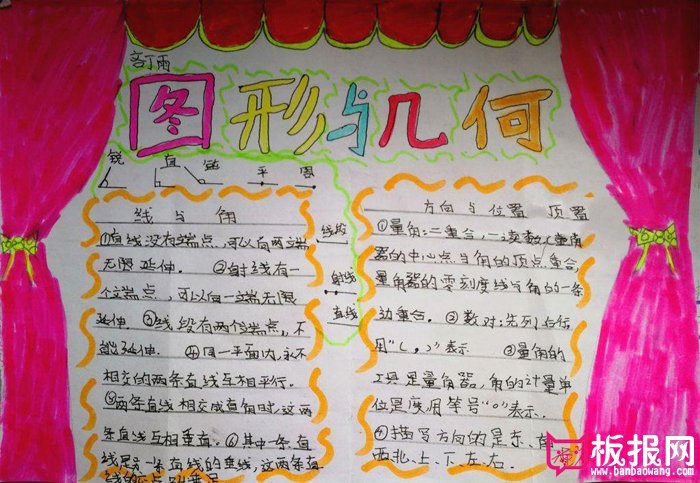 图形与几何
锐 直 钝 平 周
线与角
①直线没有端点，可以向两端
无限延伸．②射线有一
个端点，可以向一端无限
延伸．③线段有两个端点，不
能延伸．④同一平面内，永不
相交的两条直线互相平行．
⑤两条直线相交成直角时，这两
条直线互相垂直．⑥其中一条直
线是另一条直线的垂线，这两条直
线的
线段
射线
直线
方向与位置
①量角：二重合，一读数（量角
器的中心点与角的顶点重合，
量角器的零刻度线与角的一条
边重合．②数对：先列后行
用“（ ， ）”表示 ③量角的
工具是量角器，角的计量单
位是度用符号“°”表示．
④描写方向的是东、南
西北、上、下、左、右．
板报网
www.banbaowang.com